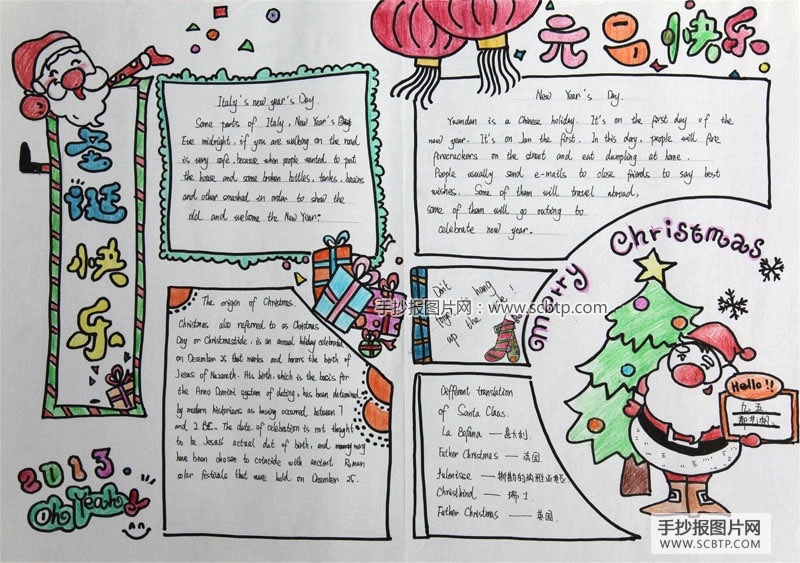 元旦快乐
圣诞快乐
Italy's new year's Day.
Some parts of Italy, New Year's
Eve midnight, if you are walking on the road
is very safe, because when people wanted to put
the house and some broken bottles, tanks, basins
and other smashed in order to show the
old and welcome the New Year.
New Year's Day.
Yuandan is a Chinese holiday. It's on the first day of the
new year. It's on Jan the first. In this day, people will fire
firecrackers on the street and eat dumpling at home.
People usually send e-mails to close friends to say best
wishes. Some of them will travel abroad,
some of them will go outing to
celebrate new year.
Merry Christmas
The origin of Christmas.
Christmas also referred to as Christmas
Day or Christmastide, is an annual holiday celebrated
on December 25 that marks and honors the birth of
Jesus of Nazareth. His birth, which is the basis for
the Anno Domini system of dating, has been determined
by modern historians as having occurred between 7
and 2 BE. The date of celebration is not thought
to be Jesus' actual dat of birth, and may
have been chosen to coincide with ancient Roman
solar festivals that were held on December 25.
Don't
hang
up the
手抄报图片网：www.scbtp.com
Different translation
of Santa Claus.
La Befana — 意大利.
Father Christmas — 法国
Julenisse — 斯勘的纳雅亚
Christkind — 瑞士
Father Christmas — 英国.
Hello!!
九五
2013.
Oh Yeah
手抄报图片网
WWW.SCBTP.COM